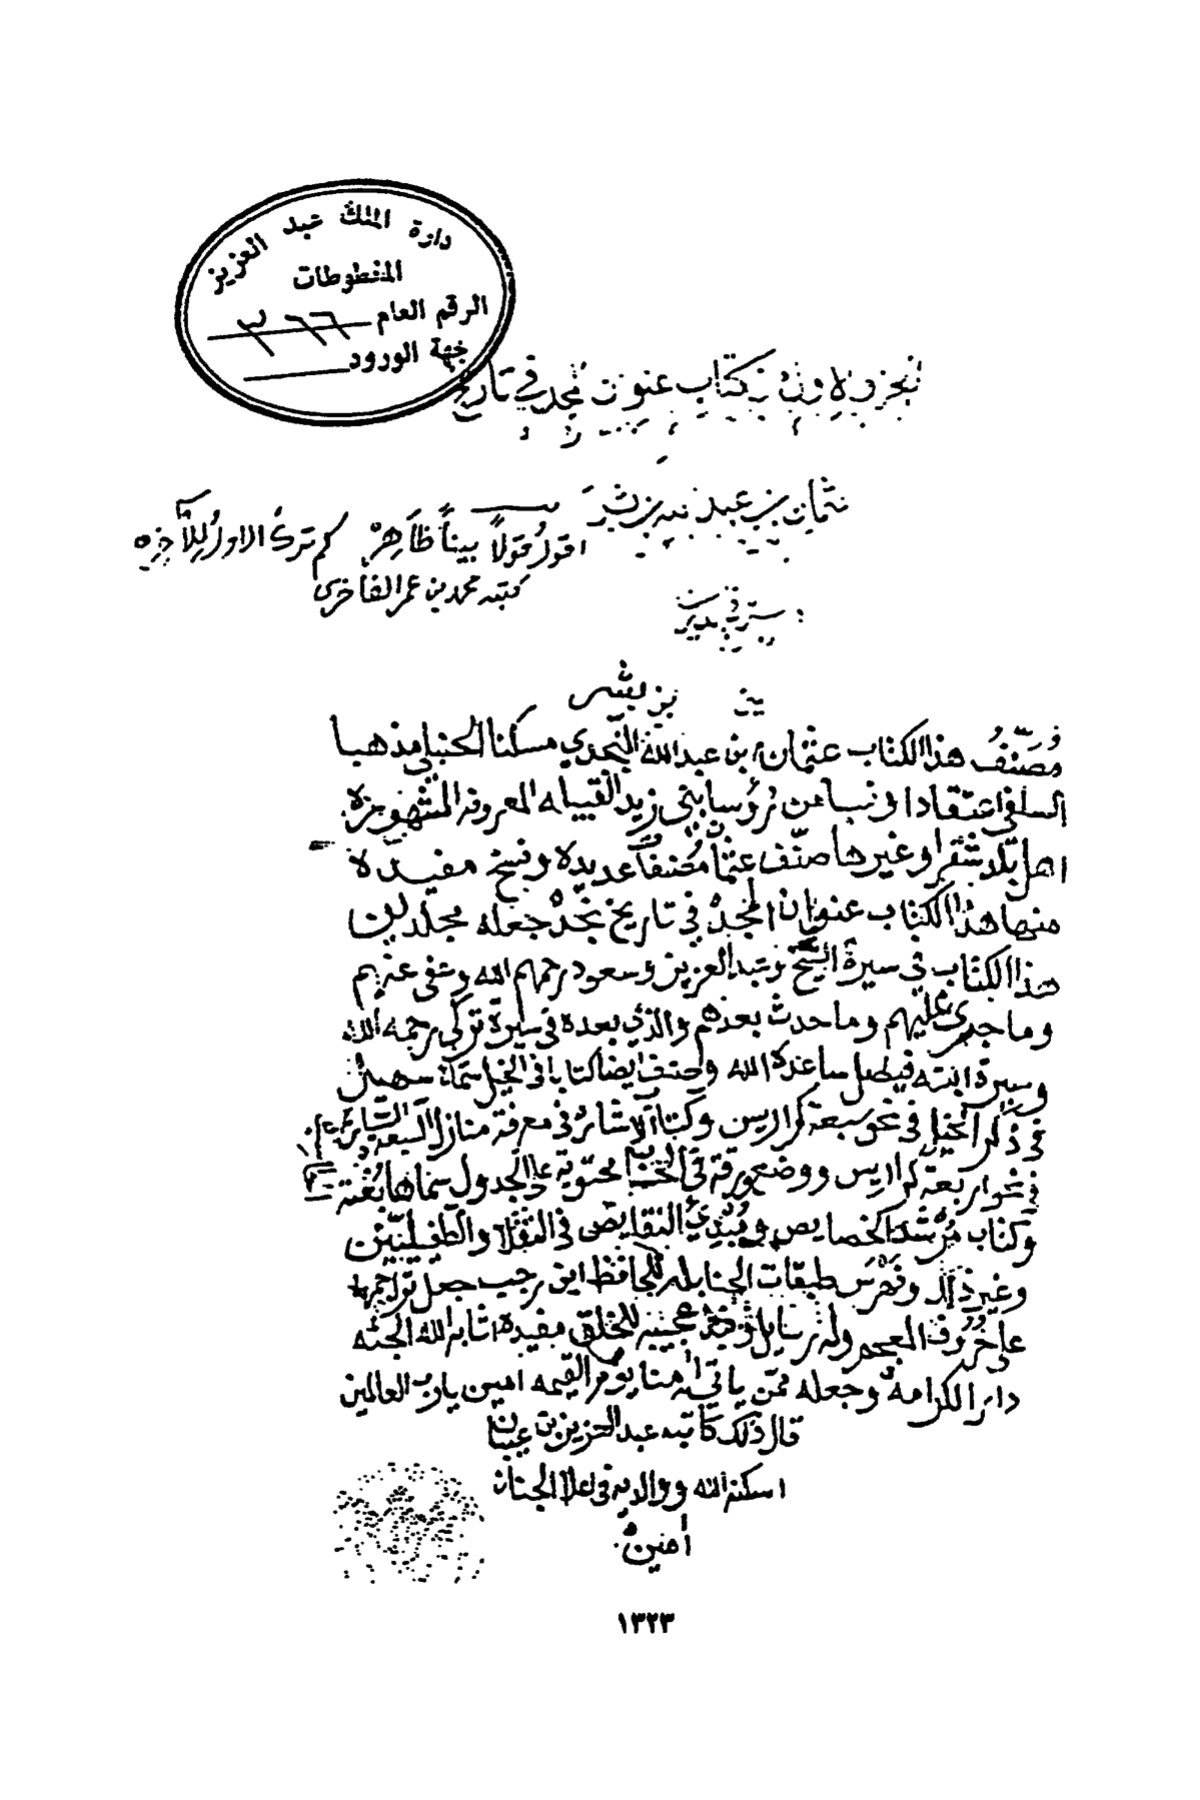 دارة الملك عبد العزيز
المخطوطات
الرقم العام ٣٦٦
جهة الورود
الجزء الاول من كتاب عنوان المجد في تاريخ
عثمان بن عبد الله بن بشر
اقول قولاً بيناً ظاهر كم ترك الاول للآخره
كتبه محمد بن عمر الفاخري
بن بشر
مُصَنّفُ هذا الكتاب عثمان بن عبد الله النجدي مسكنا الحنبلي مذهبا
السلفي اعتقادا ونسبا من رؤسا بني زيد القبيله المعروفه المشهوره
اهل بلد شقرا وغيرها صنّف عثمان مُصنفاً عديده ونسخ مفيدة
منها هذا الكتاب عنوان المجد في تاريخ نجد جعله مجلدين
هذا الكتاب في سيرة الشيخ وعبد العزيز وسعود رحمهم الله وعفى عنهم
وما جرى عليهم وما حدث بعدهم والذي بعده في سيرة تركي رحمه الله
وسيرة ابنه فيصل ساعده الله وصنف ايضا كتابا في الخيل سماه سهيل
في ذكر الخيل في نحو سبعة كراريس وكتاب الاشاره في معرفة منازل السبعة السيارة
في نحو اربعة كراريس ووضع ورقة في الحساب محتوية على الجدول سماها بُغية
وكتاب مُرشد الخصايص ومُبدي النقايص في الثقلا والطفيليين
وغير ذلك وفهرس طبقات الحنابله للحافظ ابن رجب جعل تراجمها
على حروف المعجم وله رسايل عجيبه للخلق مفيدة اثابه الله الجنه
دار الكرامه وجعله ممن ياتي امنا يوم القيمه امين يارب العالمين
قال ذلك كاتبه عبد العزيز بن عيبان
اسكنه الله ووالديه في اعلا الجنان
امين
١٣٢٣